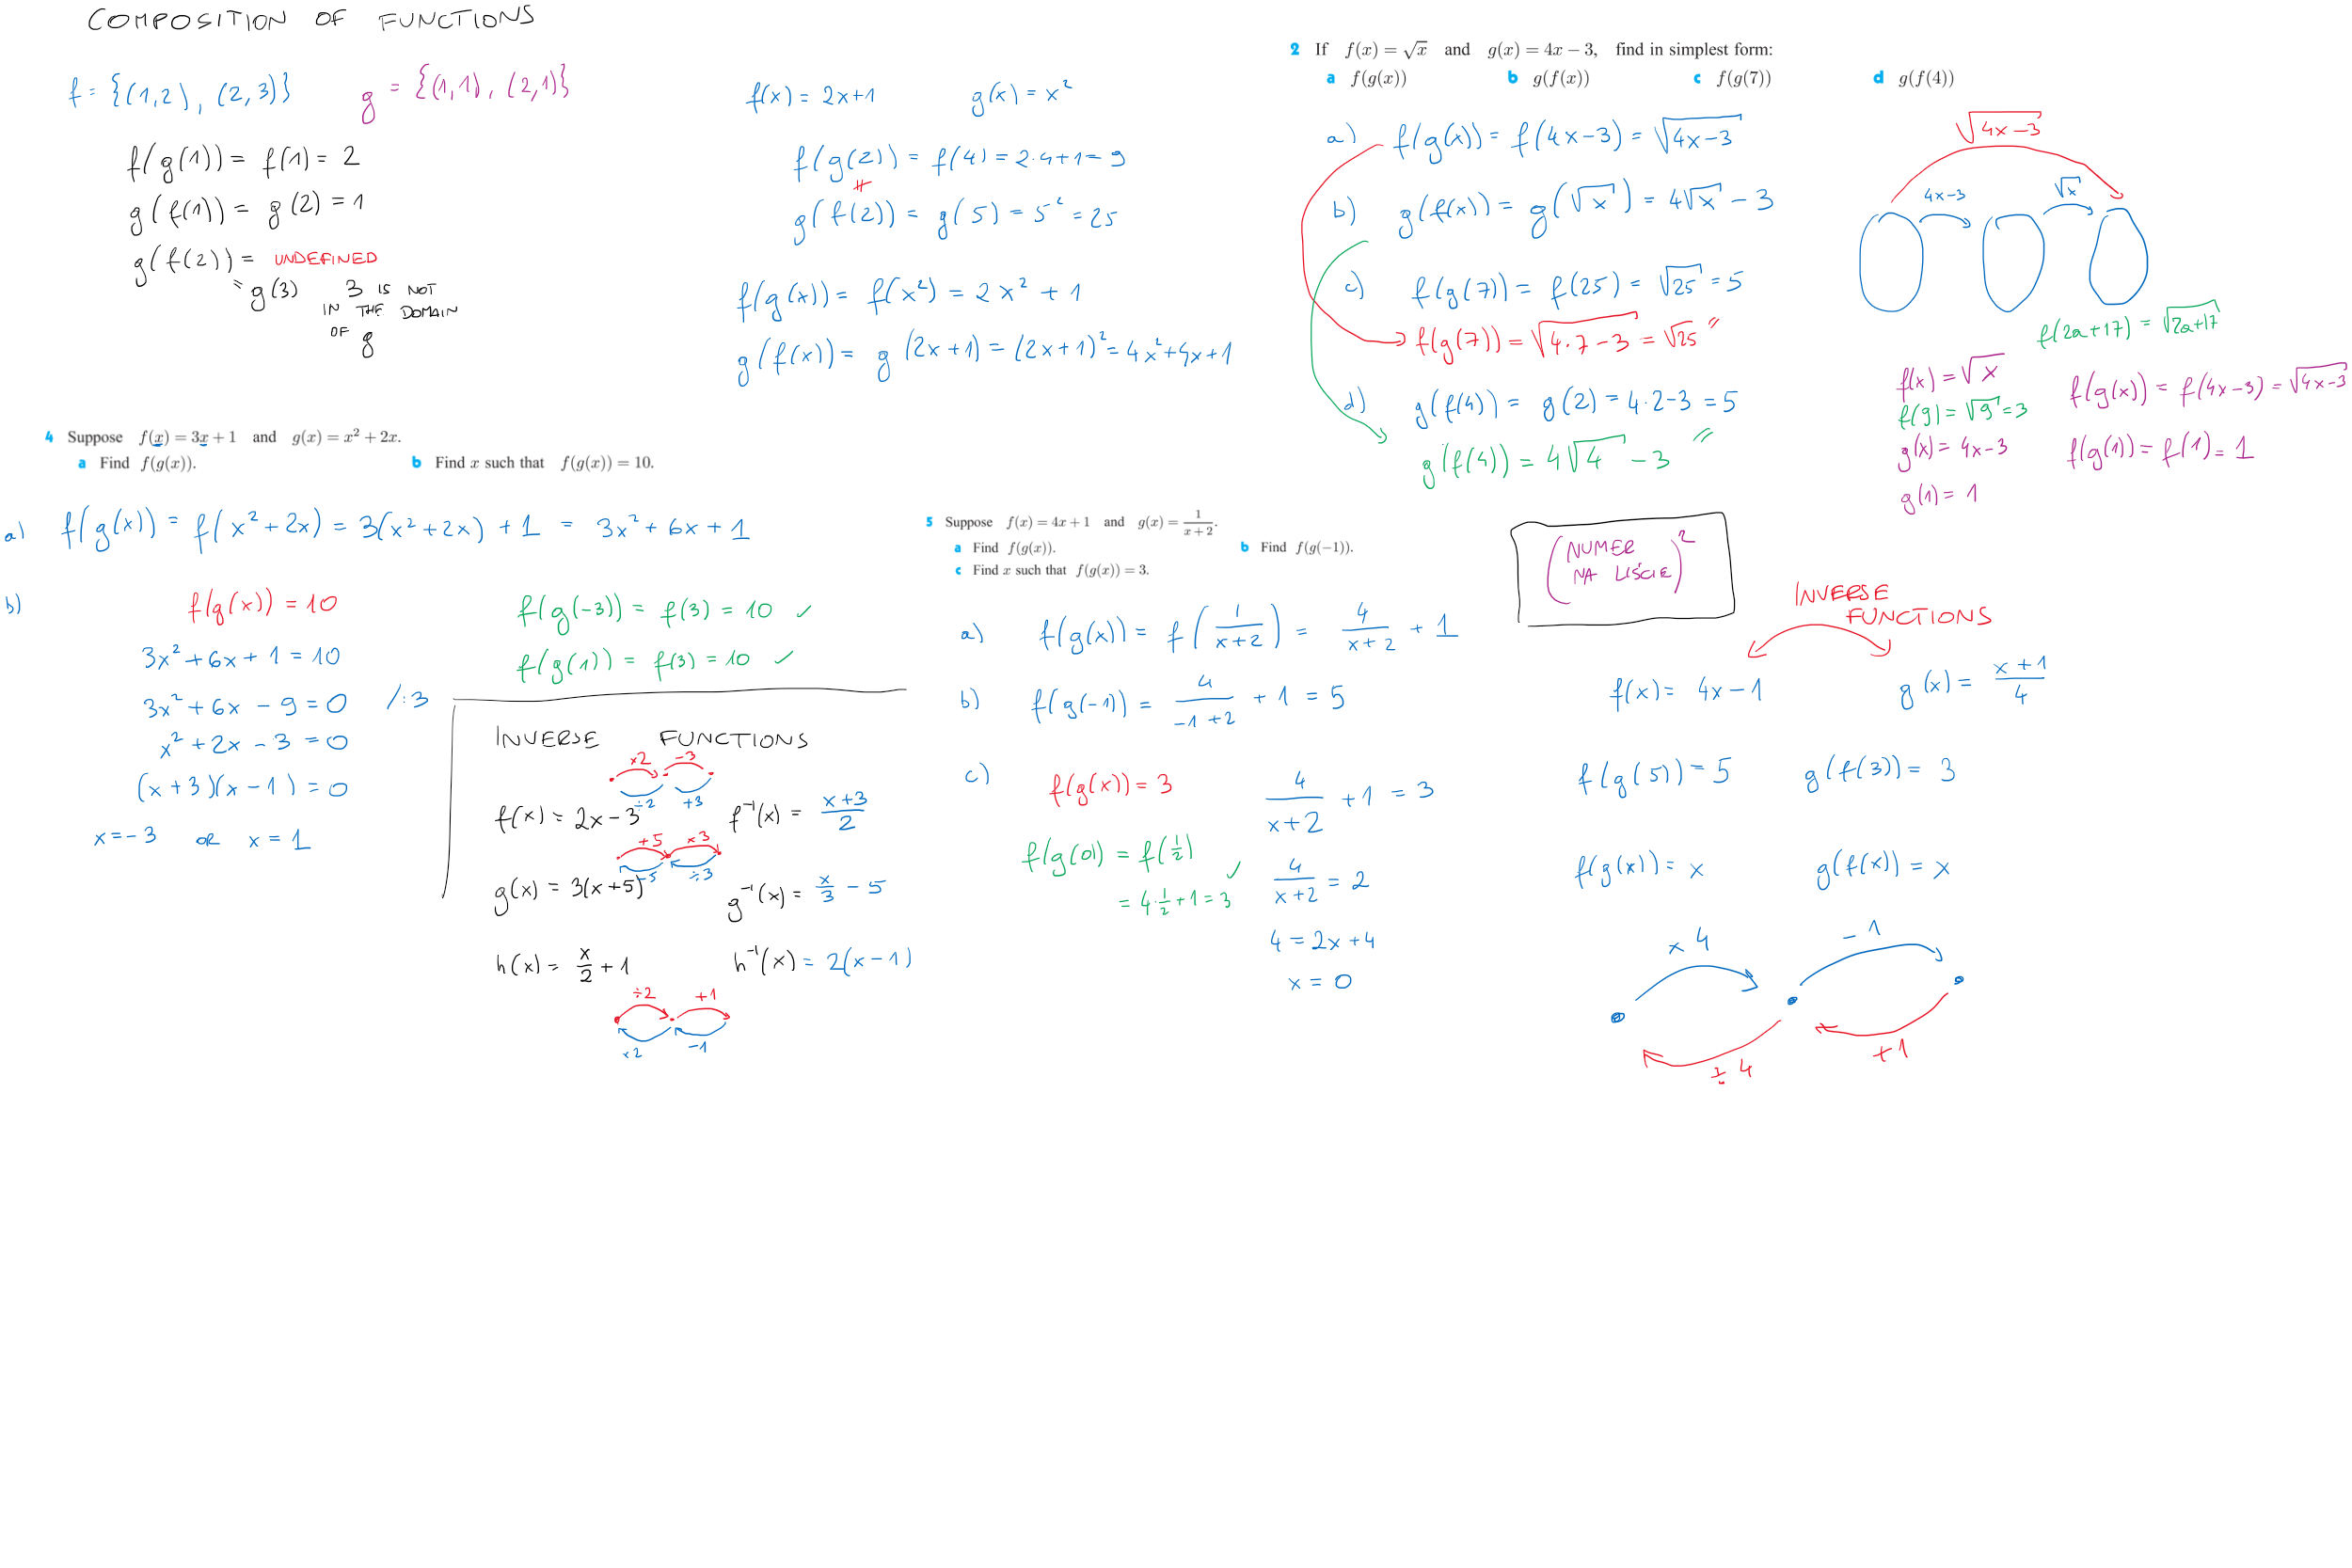 COMPOSITION OF FUNCTIONS
f = {(1,2), (2,3)}
g = {(1,1), (2,1)}
f(g(1)) = f(1) = 2
g(f(1)) = g(2) = 1
g(f(2)) = UNDEFINED
= g(3) 3 IS NOT
IN THE DOMAIN
OF g
f(x) = 2x+1
g(x) = x²
f(g(2)) = f(4) = 2·4+1 = 9
≠
g(f(2)) = g(5) = 5² = 25
f(g(x)) = f(x²) = 2x² + 1
g(f(x)) = g(2x+1) = (2x+1)² = 4x²+4x+1
2 If f(x) = √x and g(x) = 4x − 3, find in simplest form:
a f(g(x)) b g(f(x)) c f(g(7)) d g(f(4))
a) f(g(x)) = f(4x−3) = √(4x−3)
b) g(f(x)) = g(√x) = 4√x − 3
c) f(g(7)) = f(25) = √25 = 5
f(g(7)) = √(4·7−3) = √25 〃
d) g(f(4)) = g(2) = 4·2−3 = 5
g(f(4)) = 4√4 − 3 〃
√(4x−3)
4x−3 √x
f(2a+17) = √(2a+17)
f(x) = √x
f(9) = √9 = 3
g(x) = 4x−3
g(1) = 1
f(g(x)) = f(4x−3) = √(4x−3)
f(g(1)) = f(1) = 1
4 Suppose f(x) = 3x + 1 and g(x) = x² + 2x.
a Find f(g(x)). b Find x such that f(g(x)) = 10.
a) f(g(x)) = f(x²+2x) = 3(x²+2x) + 1 = 3x² + 6x + 1
b) f(g(x)) = 10
3x² + 6x + 1 = 10
3x² + 6x − 9 = 0 /:3
x² + 2x − 3 = 0
(x+3)(x−1) = 0
x = −3 OR x = 1
f(g(−3)) = f(3) = 10 ✓
f(g(1)) = f(3) = 10 ✓
INVERSE FUNCTIONS
×2 −3
÷2 +3
f(x) = 2x − 3 f⁻¹(x) = (x+3)/2
+5 ×3
−5 ÷3
g(x) = 3(x+5) g⁻¹(x) = x/3 − 5
h(x) = x/2 + 1 h⁻¹(x) = 2(x−1)
÷2 +1
×2 −1
5 Suppose f(x) = 4x + 1 and g(x) = 1/(x + 2).
a Find f(g(x)). b Find f(g(−1)).
c Find x such that f(g(x)) = 3.
a) f(g(x)) = f(1/(x+2)) = 4/(x+2) + 1
b) f(g(−1)) = 4/(−1+2) + 1 = 5
c) f(g(x)) = 3
4/(x+2) + 1 = 3
4/(x+2) = 2
4 = 2x+4
x = 0
f(g(0)) = f(1/2)
= 4·1/2+1 = 3 ✓
(NUMER
NA LIŚCIE)²
INVERSE
FUNCTIONS
f(x) = 4x−1 g(x) = (x+1)/4
f(g(5)) = 5 g(f(3)) = 3
f(g(x)) = x g(f(x)) = x
×4 −1
÷4 +1